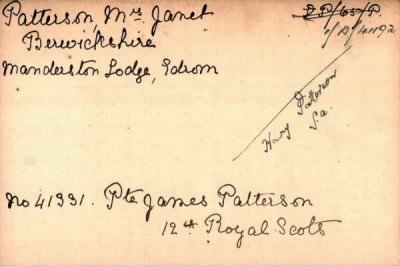 Patterson, Mrs. Janet
Berwickshire
Manderston Lodge, Edrom
Patterson
Sa.
No 41331. Pte James Patterson
12th Royal Scots